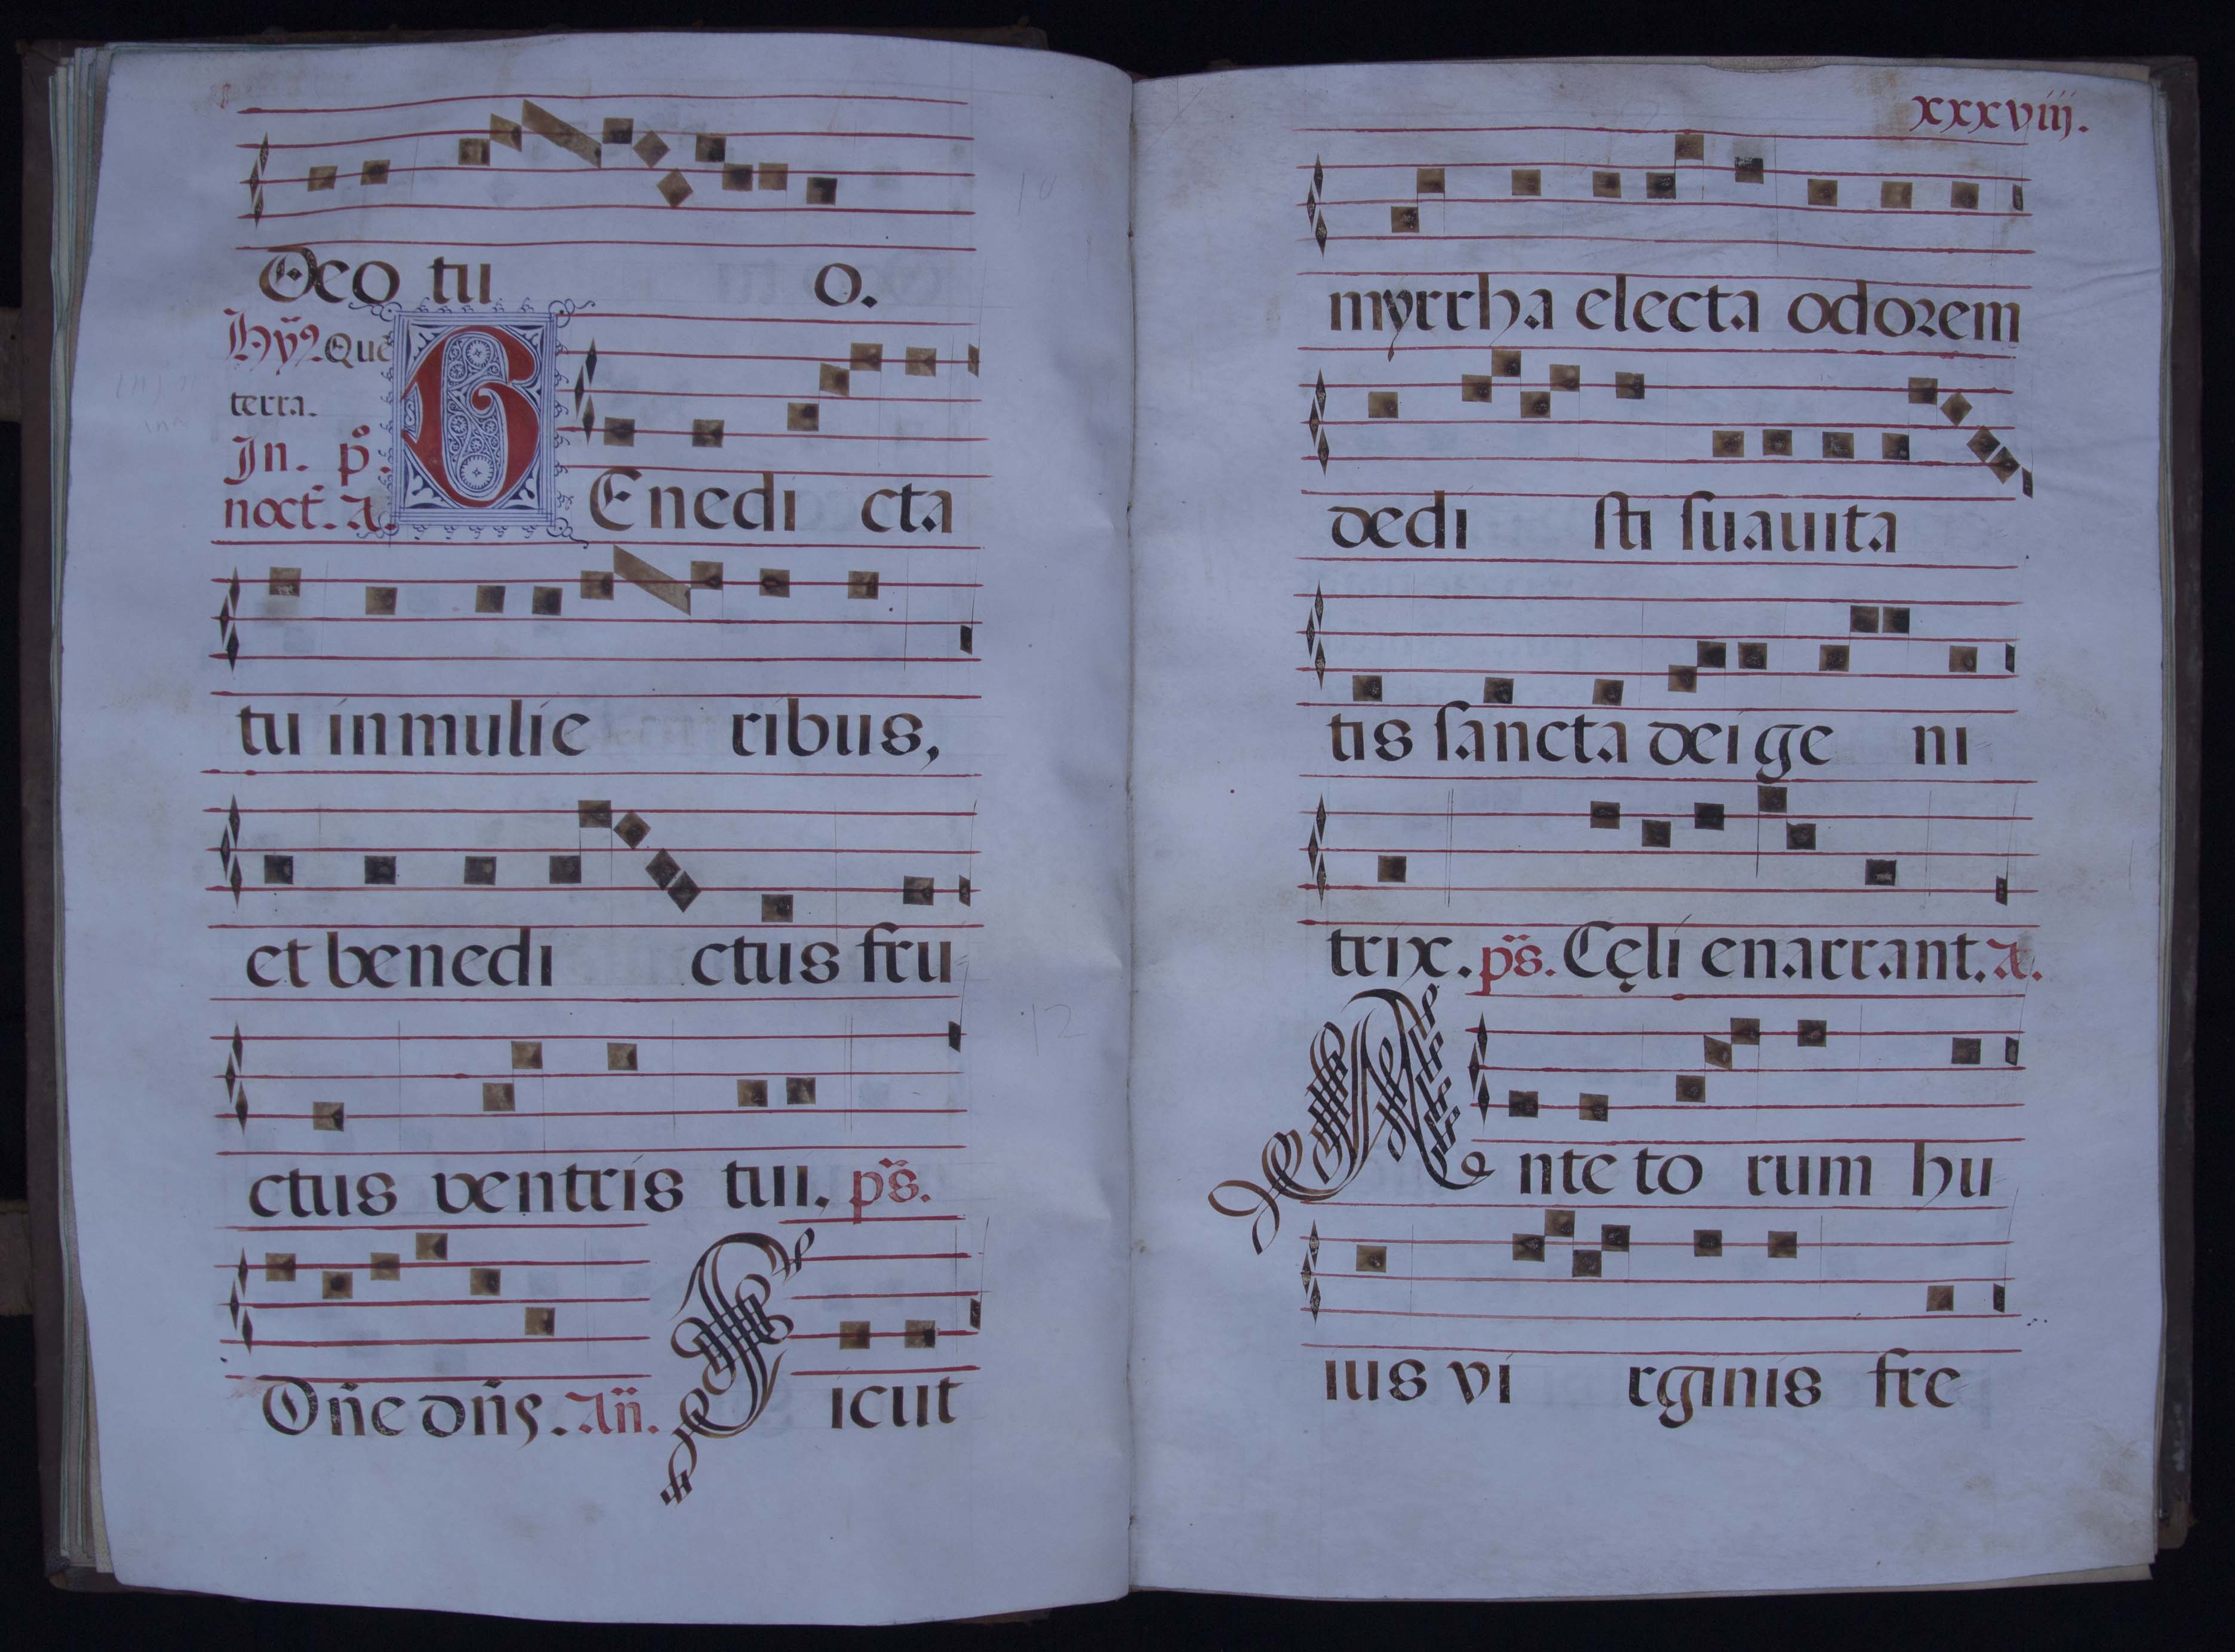 Deo tu o.
Hỹ9 Quē
terra.
In. p.º
noct. A.
BEnedi cta
tu in mulie ribus,
et benedi ctus fru
ctus ventris tui. ps.
Dñe dñs. Añ. Sicut
xxxviij.
myrrha electa odorem
dedi sti suauita
tis sancta dei ge ni
trix. ps. Cęli enarrant. A.
Ante to rum hu
ius vi rginis fre